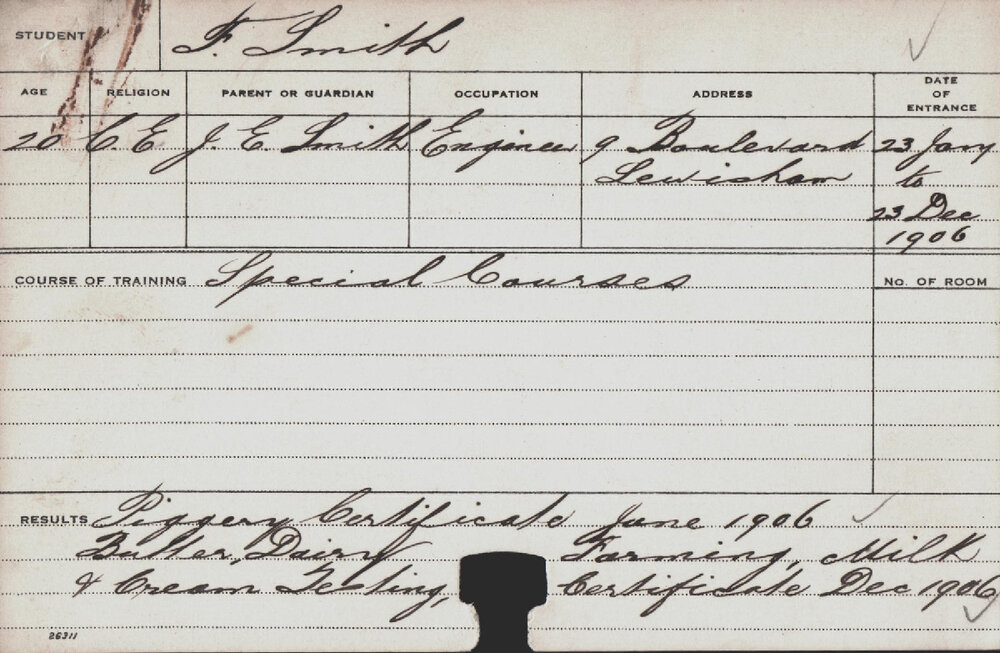 STUDENT F. Smith
AGE RELIGION PARENT OR GUARDIAN OCCUPATION ADDRESS DATE OF ENTRANCE
20 C. E J. E. Smith Engineer 9 Boulevard 23 Jany
Lewisham to
23 Dec
1906
COURSE OF TRAINING Special Courses No. OF ROOM
RESULTS Piggery Certificate June 1906
Butter, Dairy Farming, Milk
& Cream Testing, Certificate Dec 1906
26311